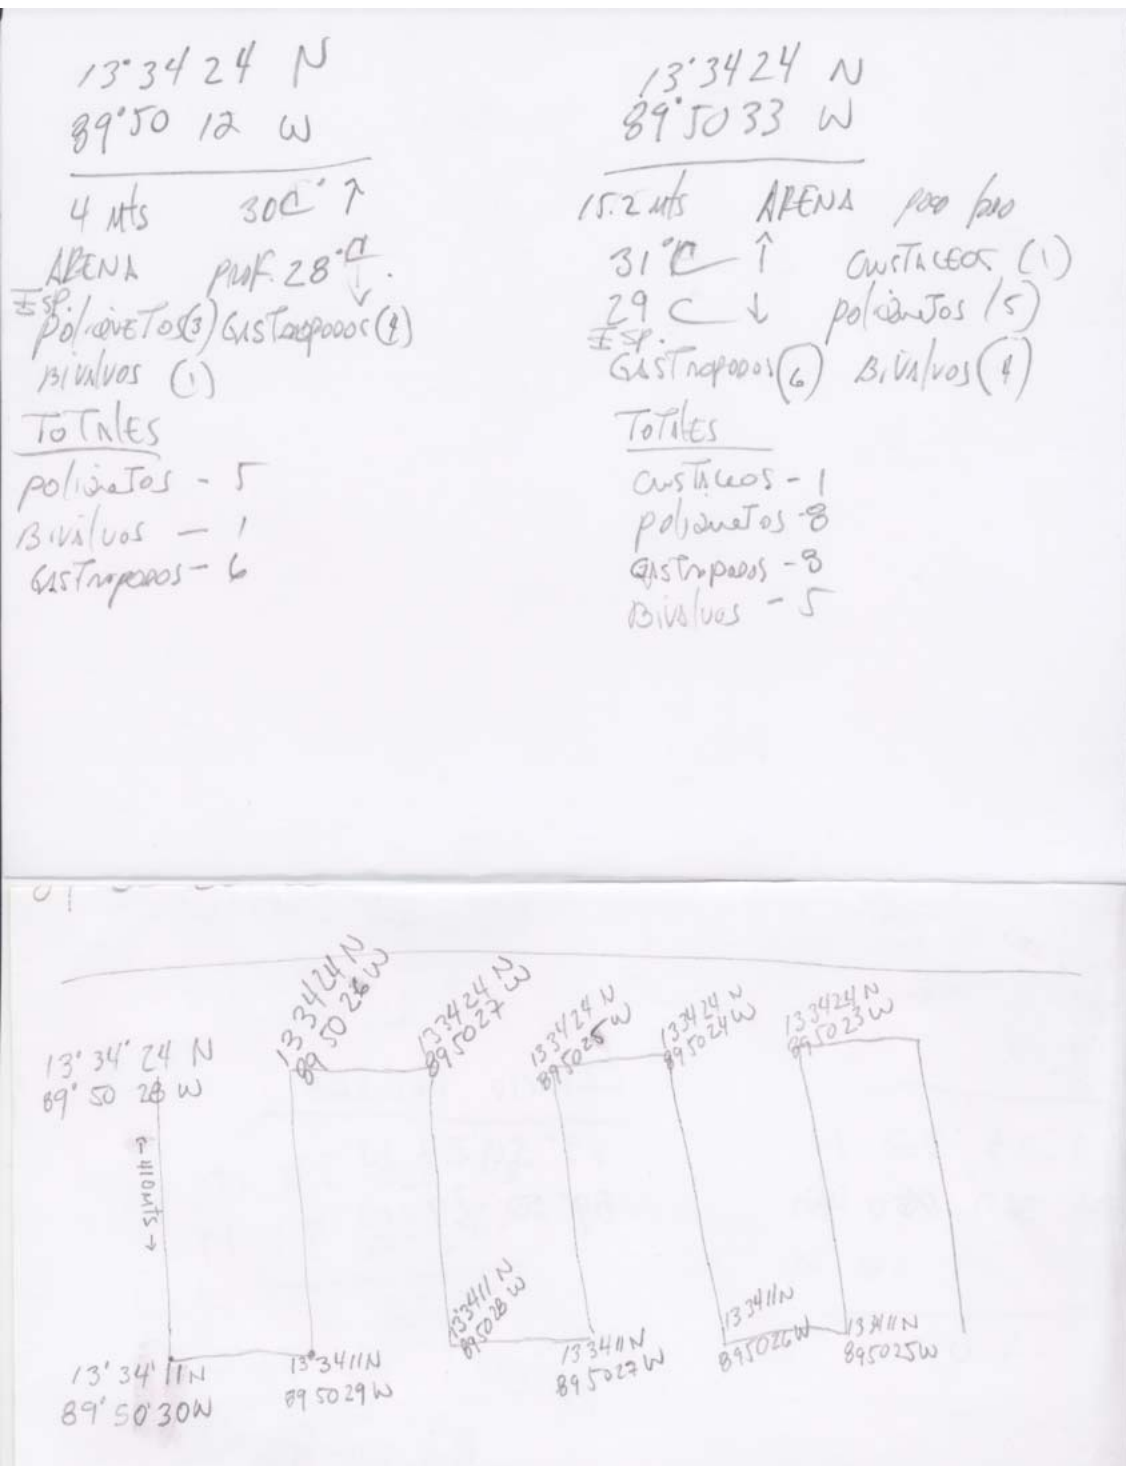 13°34 24 N
89°50 12 W
4 Mts 30C° ↑
ARENA PROF. 28°C ↓
Esp.
poliquetos(3) GASTROPODOS(4)
BIVALVOS (1)
TOTALES
poliquetos - 5
BIVALVOS - 1
GASTROPODOS - 6
13°34 24 N
89°50 33 W
15.2 Mts ARENA poco
31°C ↑ CRUSTACEOS (1)
29 C ↓ poliquetos (5)
Esp.
GASTROPODOS (6) BIVALVOS (4)
TOTALES
CRUSTACEOS - 1
poliquetos - 8
GASTROPODOS - 8
BIVALVOS - 5
13° 34' 24 N
89° 50 28 W
13 34 24 N
89 50 26 W
13 34 24 N
89 50 27 W
13 34 24 N
89 50 25 W
13 34 24 N
89 50 24 W
13 34 24 N
89 50 23 W
← 410 Mts →
13° 34' 11 N
89° 50' 30 W
13° 34 11 N
89 50 29 W
13°34 11 N
89 50 28 W
13 34 11 N
89 50 27 W
13 34 11 N
89 50 26 W
13 34 11 N
89 50 25 W